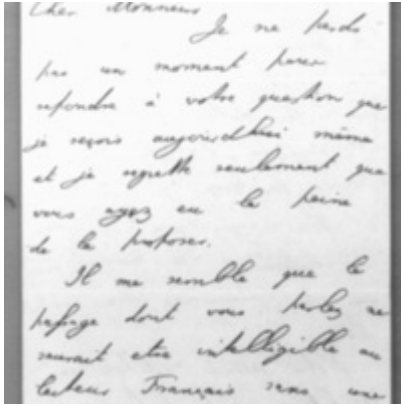 Cher Monsieur
Je ne perds
pas un moment pour
repondre à votre question que
je reçois aujourd'hui même
et je regrette seulement que
vous ayez eu la peine
de la proposer.
Il me semble que le
passage dont vous parlez ne
saurait etre intelligible au
lecteur Français sans une